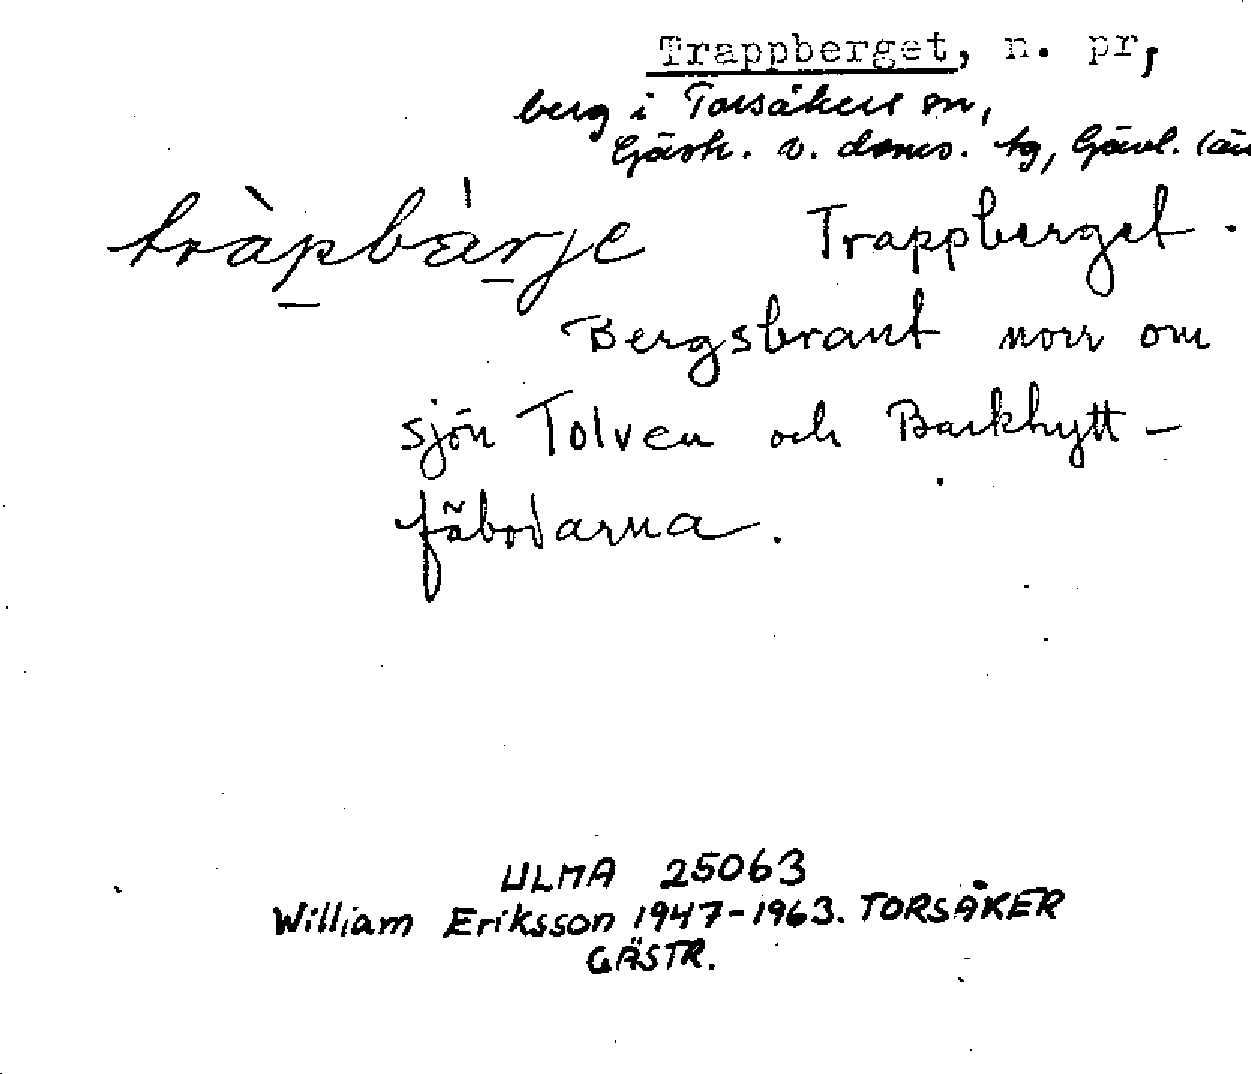 Trappberget, n. pr,
berg i Torsåkers sn,
Gästr. v. doms. tg, Gävl. län
tràpbárje Trappberget.
Bergsbrant norr om
sjön Tolven och Barkhytt-
fäbodarna.
ULMA 25063
William Eriksson 1947-1963. TORSÅKER
GÄSTR.